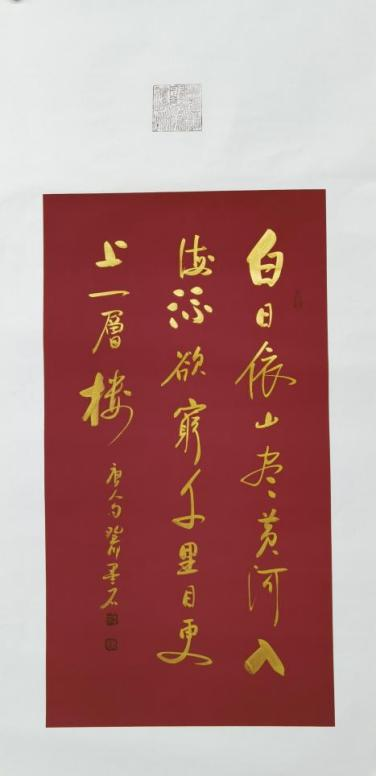 白日依山尽黄河入
海流欲窮千里目更
上一層楼
唐人句 癸卯 墨石